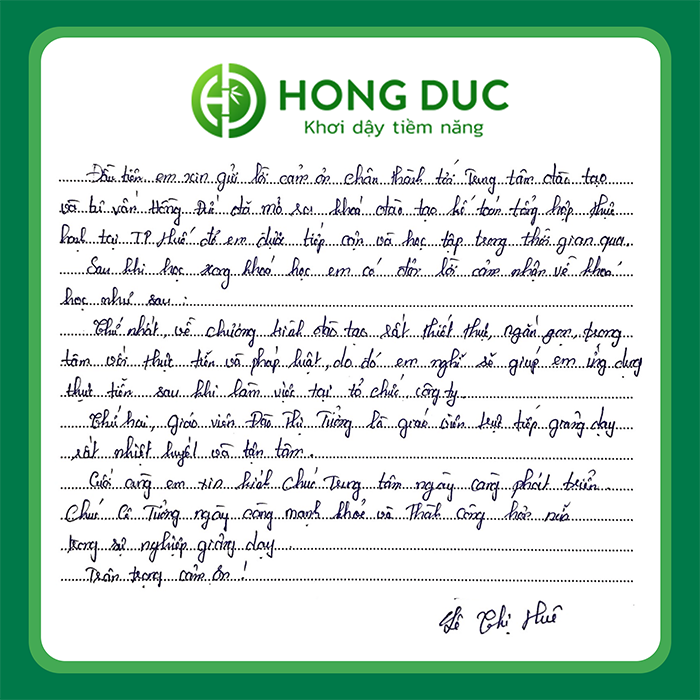 HONG DUC
Khơi dậy tiềm năng
Đầu tiên em xin gửi lời cảm ơn chân thành tới Trung tâm đào tạo
và tư vấn Hồng Đức đã mở ra khoá đào tạo kế toán tổng hợp thực
hành tại TP Huế để em được tiếp cận và học tập trong thời gian qua.
Sau khi học xong khoá học em có đôi lời cảm nhận về khoá
học như sau :
Thứ nhất, về chương trình đào tạo rất thiết thực, ngắn gọn, trọng
tâm với thực tiễn và pháp luật, do đó em nghĩ sẽ giúp em ứng dụng
thực tiễn sau khi làm việc tại tổ chức, công ty.
Thứ hai, giáo viên Đào Thị Tưởng là giáo viên trực tiếp giảng dạy
rất nhiệt huyết và tận tâm.
Cuối cùng em xin kính chúc Trung tâm ngày càng phát triển.
Chúc Cô Tưởng ngày càng mạnh khoẻ và Thành công hơn nữa
trong sự nghiệp giảng dạy.
Trân trọng cảm ơn !
Lê Thị Huê